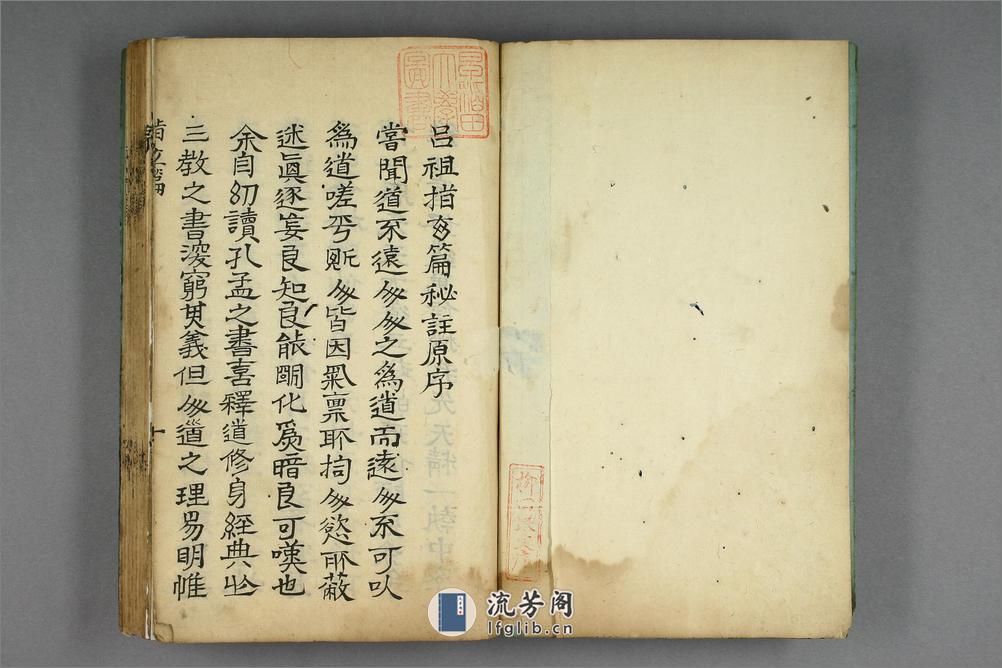 吕祖指玄篇秘註原序
嘗聞道不遠人人之爲道而遠人不可以
爲道嗟乎斯人皆因氣禀所拘人慾所蔽
迷眞逐妄良知良能朙化爲暗良可嘆也
余自幼讀孔孟之書喜釋道修身經典此
三教之書深窮其義但人道之理易明惟
早稲田
大學
圖書
流芳阁
lfglib.cn